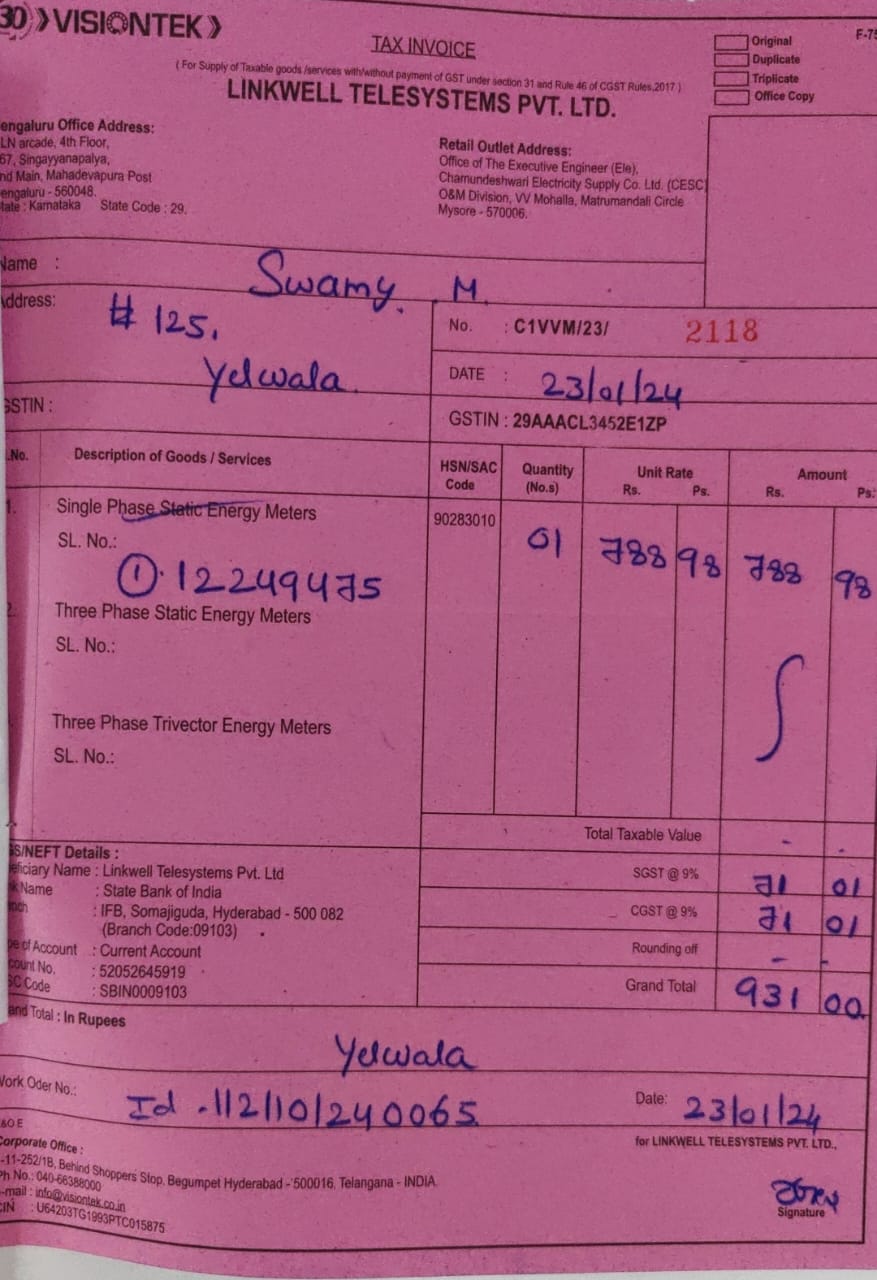 30 VISIONTEK
TAX INVOICE
F-75
( For Supply of Taxable goods /services with/without payment of GST under section 31 and Rule 46 of CGST Rules,2017 )
LINKWELL TELESYSTEMS PVT. LTD.
Original
Duplicate
Triplicate
Office Copy
engaluru Office Address:
LN arcade, 4th Floor,
67, Singayyanapalya,
nd Main, Mahadevapura Post
engaluru - 560048.
tate : Karnataka State Code : 29.
Retail Outlet Address:
Office of The Executive Engineer (Ele),
Chamundeshwari Electricity Supply Co. Ltd. (CESC)
O&M Division, VV Mohalla, Matrumandali Circle
Mysore - 570006.
Name : Swamy. M
Address: # 125,
Yelwala.
GSTIN :
No. : C1VVM/23/ 2118
DATE : 23/01/24
GSTIN : 29AAACL3452E1ZP
.No. Description of Goods / Services HSN/SAC Code Quantity (No.s) Unit Rate Rs. Ps. Amount Rs. Ps.
1. Single Phase Static Energy Meters 90283010 01 788 98 788 98
SL. No.:
① 12249475
2. Three Phase Static Energy Meters
SL. No.:
Three Phase Trivector Energy Meters
SL. No.:
Total Taxable Value - -
SGST @ 9% 71 01
CGST @ 9% 71 01
Rounding off - -
Grand Total 931 00
GS/NEFT Details :
eficiary Name : Linkwell Telesystems Pvt. Ltd
k Name : State Bank of India
nch : IFB, Somajiguda, Hyderabad - 500 082
(Branch Code:09103)
pe of Account : Current Account
count No. : 52052645919
SC Code : SBIN0009103
and Total : In Rupees
Yelwala
Work Oder No.: Id . 112/10/240065
Date: 23/01/24
&O E
for LINKWELL TELESYSTEMS PVT. LTD.,
Corporate Office :
-11-252/1B, Behind Shoppers Stop, Begumpet Hyderabad - 500016, Telangana - INDIA.
Ph No.: 040-66388000
-mail : info@visiontek.co.in
CIN : U64203TG1993PTC015875
Signature